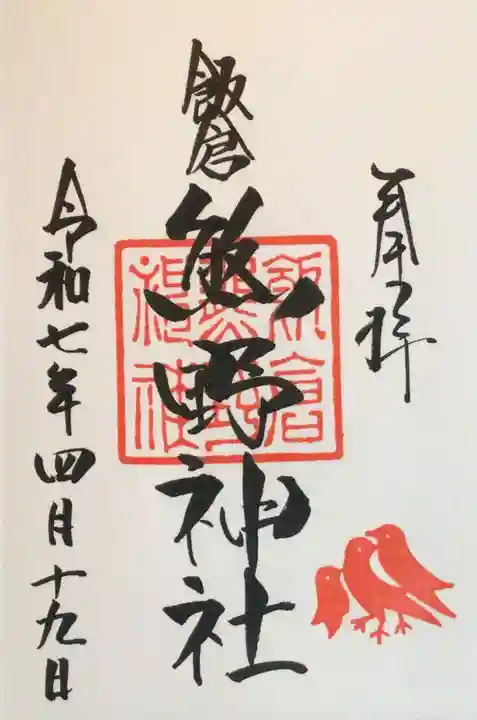 奉拝
飯倉
熊野神社
飯倉
熊野
神社
令和七年四月十九日